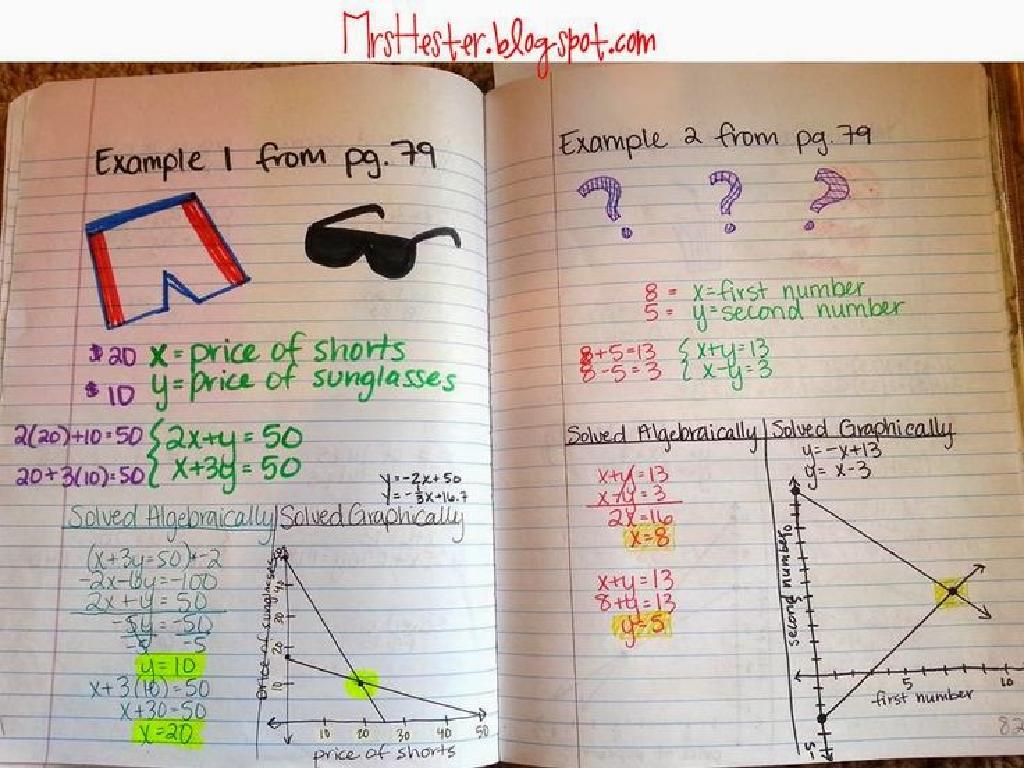 MrsHester.blogspot.com
Example 1 from pg. 79
$20 x = price of shorts
$10 y = price of sunglasses
2(20)+10=50 { 2x+y = 50
20+3(10)=50 { x+3y = 50
y=-2x+50
y=-1/3x+16.7
Solved Algebraically | Solved Graphically
(x+3y=50)·-2
-2x-6y=-100
2x+y=50
-5y=-50
-5 -5
y=10
x+3(10)=50
x+30=50
x=20
price of sunglasses
50
40
30
20
10
10 20 30 40 50
price of shorts
Example 2 from pg. 79
? ? ?
8 = x=first number
5 = y=second number
8+5=13 { x+y=13
8-5=3 { x-y=3
Solved Algebraically | Solved Graphically
y=-x+13
y= x-3
x+y=13
x-y=3
2x=16
x=8
x+y=13
8+y=13
y=5
second number
5 10
first number
-5
82